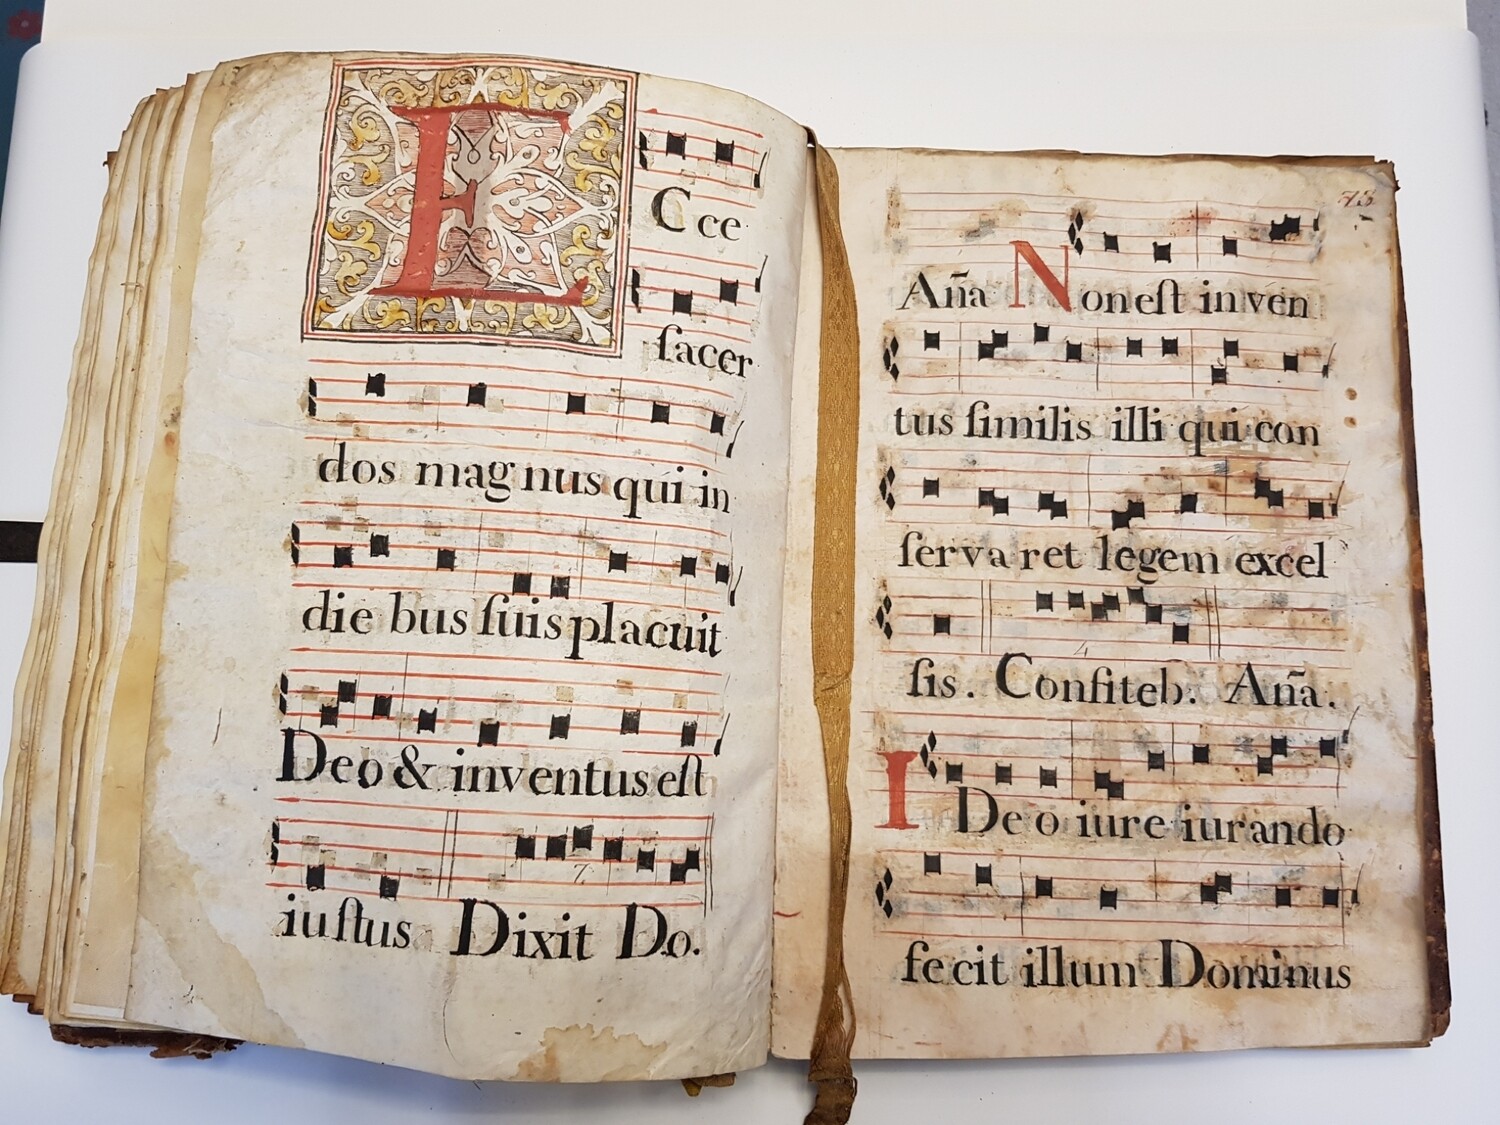 E Cce
ſacer
dos magnus qui in
die bus ſuis placuit
Deo & inventus eſt
iuſtus Dixit Do.
73
Aña Non eſt inven
tus ſimilis illi qui con
ſerva ret legem excel
ſis. Confiteb. Aña.
I Deo iure iurando
fecit illum Dominus